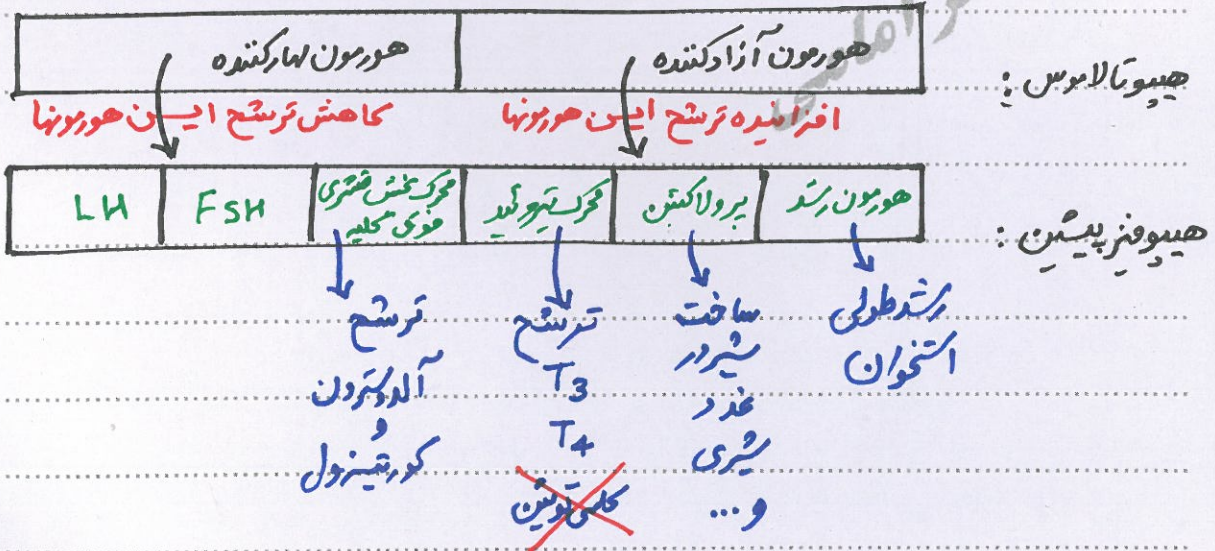 هیپوتالاموس :
هورمون آزادکننده
هورمون مهارکننده
افزاینده ترشح این هورمونها
کاهش ترشح این هورمونها
هیپوفیز پیشین :
هورمون رشد
پرولاکتین
محرک تیروئید
محرک بخش قشری
فوق کلیه
FSH
LH
رشد طولی
استخوان
ساخت
شیر در
غدد
شیری
و ...
ترشح
T3
T4
کلسی تونین
ترشح
آلدوسترون
و
کورتیزول